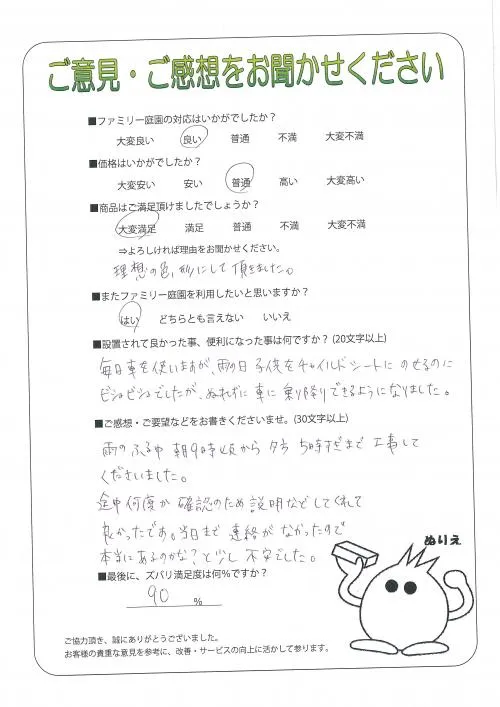 ご意見・ご感想をお聞かせください
■ファミリー庭園の対応はいかがでしたか？
大変良い 良い 普通 不満 大変不満
■価格はいかがでしたか？
大変安い 安い 普通 高い 大変高い
■商品はご満足頂けましたでしょうか？
大変満足 満足 普通 不満 大変不満
⇒よろしければ理由をお聞かせください。
理想の色、形にして頂きました。
■またファミリー庭園を利用したいと思いますか？
はい どちらとも言えない いいえ
■設置されて良かった事、便利になった事は何ですか？ (20文字以上)
毎日車を使いますが、雨の日 子供をチャイルドシートにのせるのに
ビショビショでしたが、ぬれずに車に乗り降りできるようになりました。
■ご感想・ご要望などをお書きくださいませ。(30文字以上)
雨のふる中 朝9時頃から 夕方 5時すぎまで 工事して
くださいました。
途中何度か 確認のため 説明などしてくれて
良かったです。当日まで 連絡が なかったので
本当にあるのかな？と少し 不安でした。
■最後に、ズバリ満足度は何％ですか？
90 %
ぬりえ
ご協力頂き、誠にありがとうございました。
お客様の貴重な意見を参考に、改善・サービスの向上に活かして参ります。